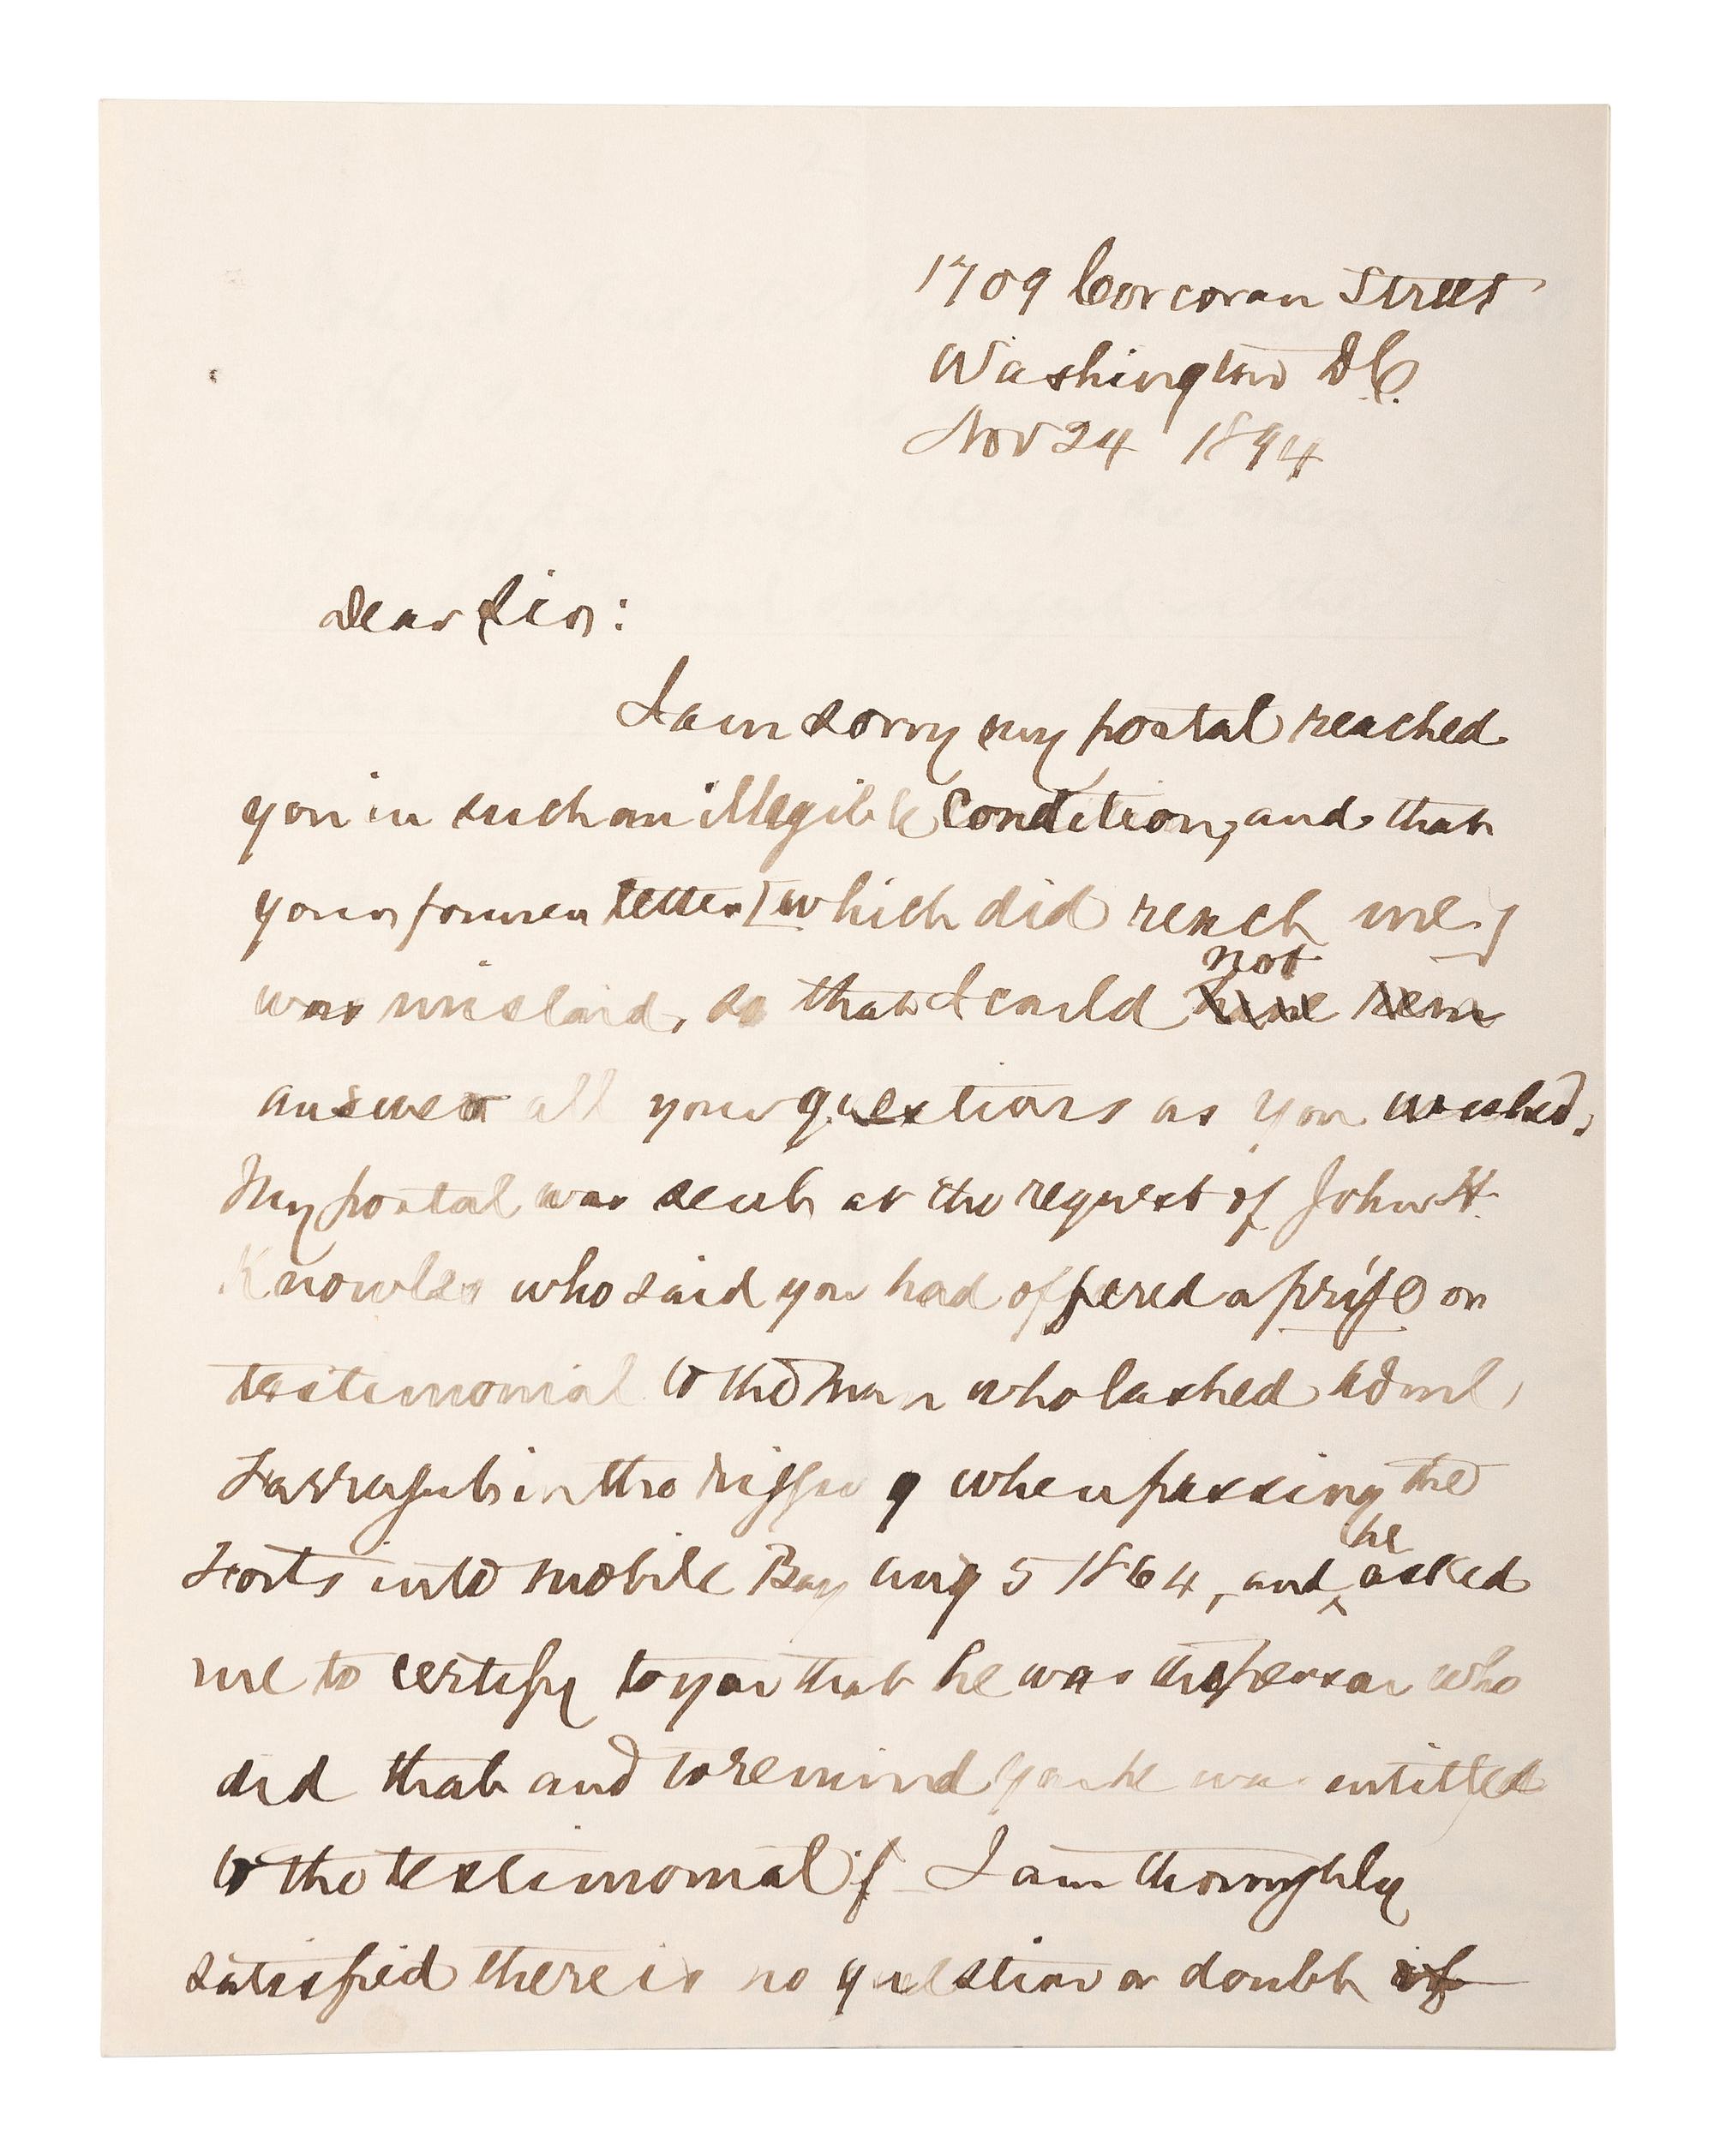 1709 Corcoran Street
Washington D.C.
Nov 24 1894
Dear Sir:
I am sorry my postal reached
you in such an illegible condition, and that
your former letter [which did reach me]
was mislaid, so that I could not
answer all your questions as you wished.
My postal was sent at the request of John H.
Knowles who said you had offered a prize or
testimonial to the man who lashed Adml,
Farragut in the rigging when passing the
Forts into Mobile Bay Aug 5 1864, and he asked
me to certify to you that he was the person who
did that and to remind you he was entitled
to the testimonial. I am thoroughly
satisfied there is no question or doubt of